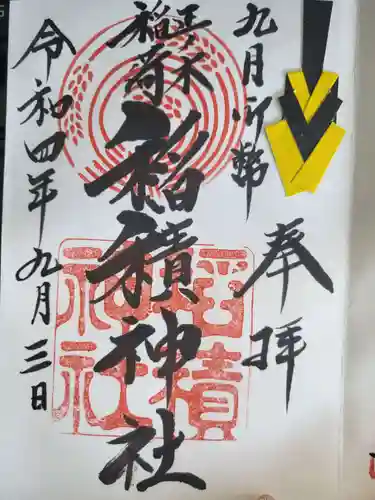 九月御幣
奉拝
正ノ木
稲荷
稲積神社
稲積
神社
令和四年九月三日